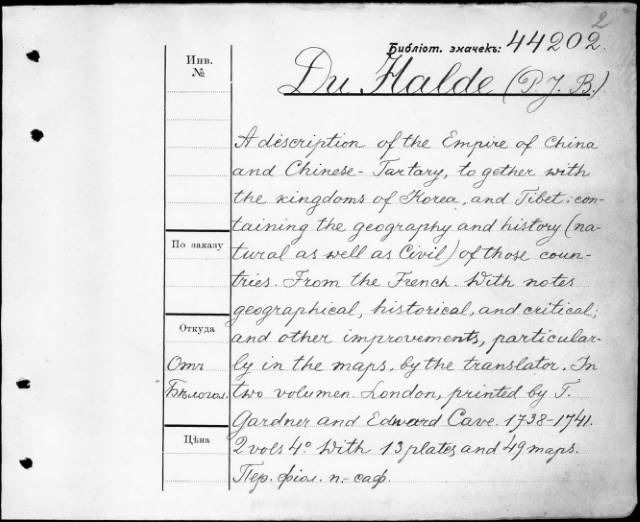 2
Библіот. значекъ: 44202.
Инв.
№
Du Halde (P. J. B.)
A description of the Empire of China
and Chinese-Tartary, to gether with
the kingdoms of Korea, and Tibet: con-
taining the geography and history (na-
По заказу
tural as well as Civil) of those coun-
tries. From the French. With notes
geographical, historical, and critical;
Откуда
and other improvements, particular-
Отъ
ly in the maps, by the translator. In
Бѣлогол.
two volumen. London, printed by T.
Gardner and Edward Cave. 1738-1741.
Цѣна
2 vols 4° With 13 plates and 49 maps.
Пер. фіол. п.-саф.